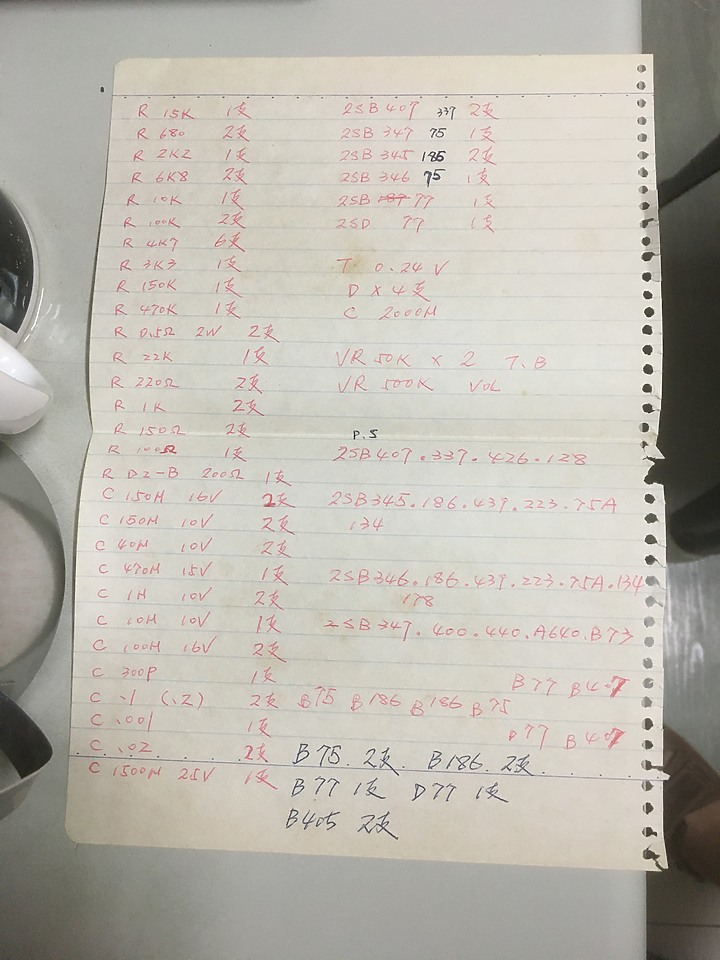 R 15K 1支
R 680 2支
R 2K2 1支
R 6K8 2支
R 10K 1支
R 100K 2支
R 4K7 6支
R 3K3 1支
R 150K 1支
R 470K 1支
R 0.5Ω 2W 2支
R 22K 1支
R 220Ω 2支
R 1K 2支
R 150Ω 2支
R 100Ω 1支
R DZ-B 200Ω 1支
C 150M 16V 2支
C 150M 10V 2支
C 40M 10V 2支
C 470M 15V 1支
C 1M 10V 2支
C 10M 10V 1支
C 100M 16V 2支
C 300P 1支
C .1 (.2) 2支
C .001 1支
C .02 2支
C 1500M 25V 1支
2SB 407 337 2支
2SB 347 75 1支
2SB 345 186 2支
2SB 346 75 1支
2SB 77 1支
2SD 77 1支
T 0.24 V
D X 4支
C 2000M
VR 50K X 2 T.B
VR 500K VOL
P.S
2SB407.337.426.128
2SB345.186.439.223.75A
134
2SB346.186.439.223.75A.134
178
2SB347.400.440.A640.B73
B77 B407
B75 B186 B186 B75
D77 B407
B75. 2支. B186. 2支
B77 1支 D77 1支
B405 2支